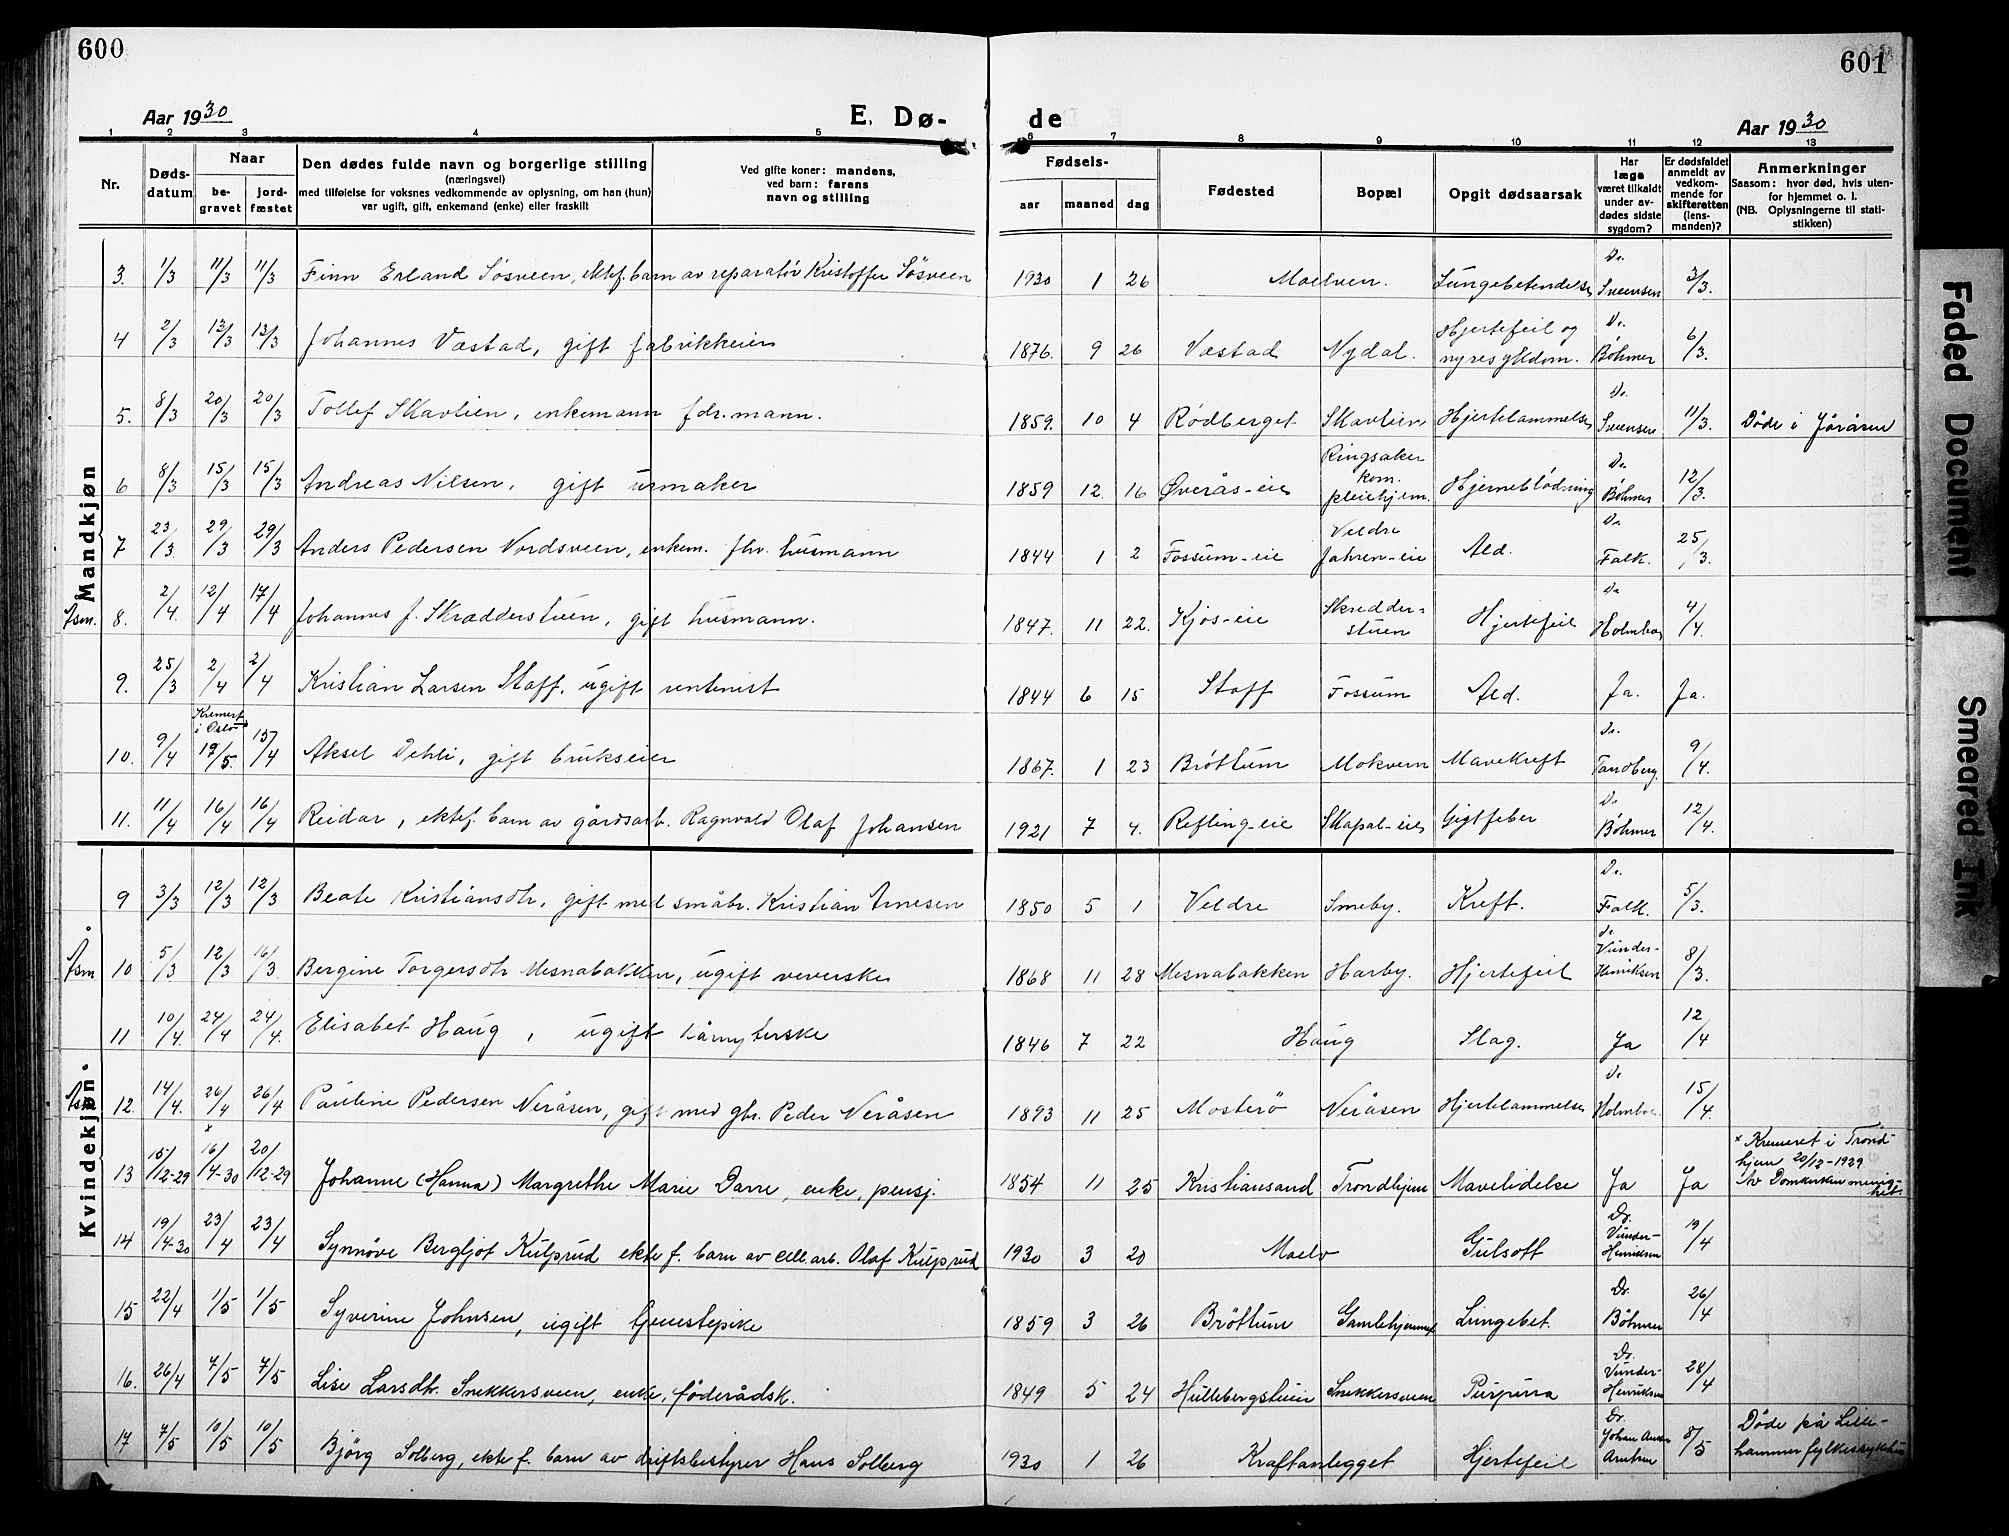 600
601
Aar 1930
E. Dø-
de
Aar 1930
1 2 3 4 5 6 7 8 9 10 11 12 13
Nr.
Døds-
datum
Naar
be-
gravet
jord-
fæstet
Den dødes fulde navn og borgerlige stilling
(næringsvei)
med tilføielse for voksnes vedkommende av oplysning, om han (hun)
var ugift, gift, enkemand (enke) eller fraskilt
Ved gifte koner: mandens,
ved barn: farens
navn og stilling
Fødsels-
aar maaned dag
Fødested
Bopæl
Opgit dødsaarsak
Har
læge
været tilkaldt
under av-
dødes sidste
sygdom?
Er dødsfaldet
anmeldt av
vedkom-
mende for
skifteretten
(lens-
manden)?
Anmerkninger
Saasom: hvor død, hvis uten-
for hjemmet o. l.
(NB. Oplysningerne til stati-
stikken)
Mandkjøn
3. 1/3 11/3 11/3 Finn Erland Søsveen, ektef. barn av reparatør Kristoffer Søsveen 1930 1 26 Moelven. Lungebetendelse Dr. Sveensen 3/3.
4 2/3 13/3 13/3 Johannes Væstad, gift fabrikkeier 1876. 9 26 Væstad Nydal. Hjertefeil og nyresykdom. Dr. Böhmer 6/3.
5. 8/3 20/3 20/3 Tollef Skavlien, enkemann fdr. mann. 1859. 10 4 Rødberget Skavlien Hjertelammelse Dr. Sveensen 11/3. Döde i Jöråsen
6 8/3 15/3 15/3 Andreas Nilsen, gift urmaker 1859 12. 16 Øverås-eie Ringsaker kom. pleiehjem. Hjerneblödning Dr. Böhmer 12/3.
7 23/3 29/3 29/3 Anders Pedersen Nordsveen, enkem. fhv. husmann 1844 1 2 Fossum-eie Veldre Jahren-eie Ald. Dr. Falk. 25/3.
Åsm. 8. 2/4. 12/4 17/4 Johannes J. Skrædderstuen, gift husmann. 1847. 11 22. Kjos-eie Skredder-stuen Hjertefeil Dr Holmboe 4/4.
9. 25/3 2/4 2/4 Kristian Larsen Staff, ugift rentenist 1844 6 15 Staff Fossum Ald. Ja. Ja.
10. 9/4 Kremert i Oslo 17/5. 15/4 Aksel Dehli, gift brukseier 1867. 1 23 Bröttum Mokvern Mavekreft Dr. Tandberg. 9/4.
11. 11/4 16/4 16/4 Reidar, ektef. barn av gårdsarb. Ragnvald Olaf Johansen 1921 7 4. Refling-eie Skapal-eie Gigtfeber Dr Böhmer 12/4.
Kvindekjøn.
9 3/3 12/3 12/3 Beate Kristiansdtr, gift med småbr. Kristian Arnesen 1850 5 1 Veldre Smeby. Kreft. Dr. Falk. 5/3.
Åsm 10 5/3 12/3 16/3. Bergine Torgersdtr Mesnabakken, ugift veverske 1868 11 28 Mesnabakken Harby. Hjertefeil dr Vunder-Henriksen 8/3.
11 10/4. 24/4 24/4. Elisabet Haug, ugift hårnyterske 1846 7 22 Haug Slag. Ja 12/4
Åsm 12. 14/4. 26/4 26/4 Pauline Pedersen Neråsen, gift med gbr. Peder Neråsen 1893 11 25 Mosterö Neråsen Hjertelammelse Dr Holmboe 15/4.
13 15/12-29 x 16/4-30 20/12-29 Johanne (Hanna) Margrethe Marie Darre, enke, pensj. 1854 11 25 Kristiansand Trondhjem Mavelidelse Ja Ja x Kremeret i Trond-
hjem 20/12-1929.
Av Domkirken menig-
het.
14 19/4-30 23/4 23/4 Synnöve Bergljot Kulprud ekte f. barn av cell.arb. Olaf Kulprud 1930 3 20 Moelv Gulsott Dr. Vunder-Henriksen 19/4
15 22/4 1/5 1/5 Syverine Johnsen, ugift tjenestepike 1859 3 26 Bröttum Gamlehjemmet Lungebet. Dr. Böhmer 26/4
16. 26/4 7/5 7/5 Lise Larsdtr. Snekkersveen, enke, föderådsk. 1849 5 24 Hullebergstuen Snekkersveen Purpura Dr. Vunder-Henriksen 28/4
17 7/5 10/5 10/5 Bjørg Solberg, ekte f. barn av driftsbestyrer Hans Solberg 1930 1 26 Kraftanlegget Hjertefeil Dr. Johan 8/5 Döde på Lille-
hammer fylkessykehus
Faded Document
Smeared Ink